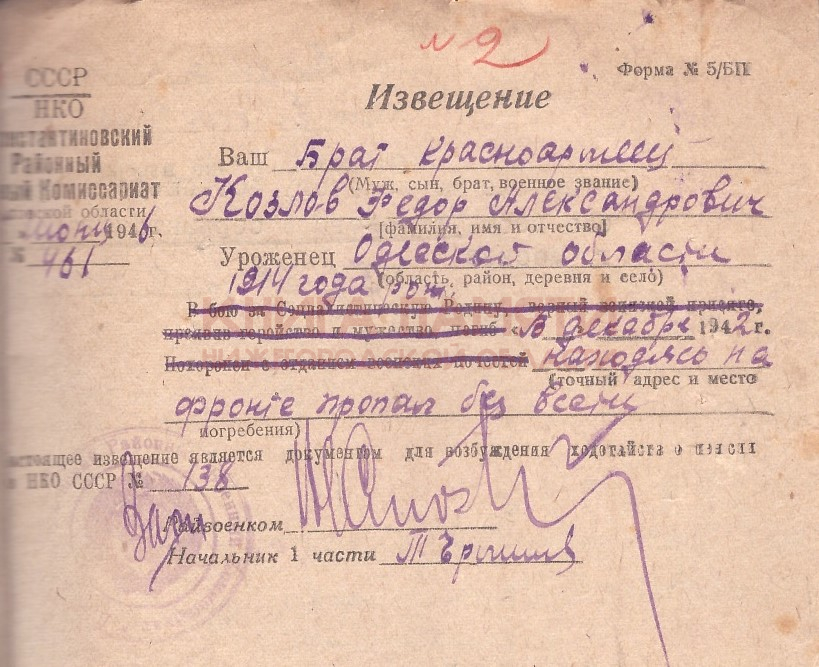 № 2
Форма № 5/БП
СССР
НКО
Районный
Комиссариат
области
1946 г.
№ 461
Извещение
Ваш Брат красноармеец
(Муж, сын, брат, военное звание)
Козлов Федор Александрович
[фамилия, имя и отчество]
Уроженец Одесской области
(область, район, деревня и село)
1914 года рож.
В бою за Социалистическую Родину, верный воинской присяге,
проявив геройство и мужество, погиб «В декабре 1942 г.
Похоронен с отданием воинских почестей находясь на
(точный адрес и место
фронте пропал без вести
погребения)
Настоящее извещение является документом для возбуждения ходатайств о пенсии
НКО СССР № 138
Райвоенком
Начальник 1 части